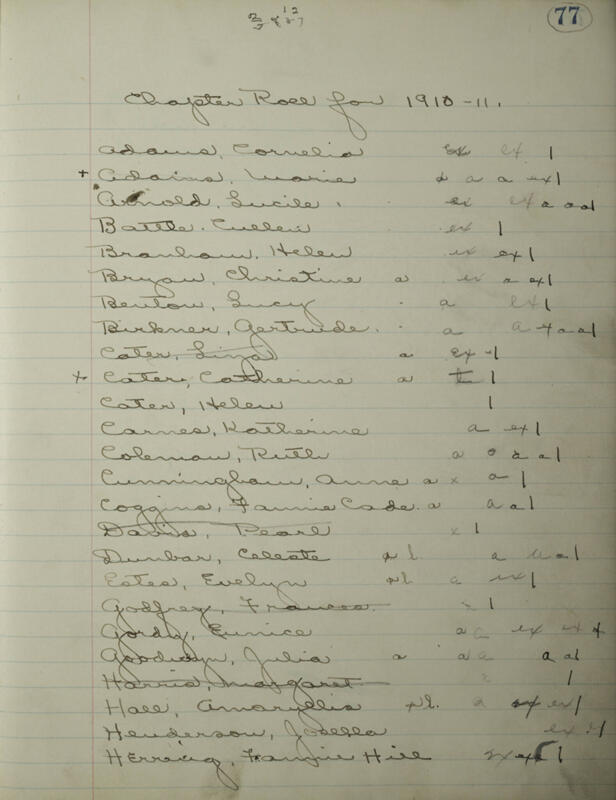 77
Chapter Roll for 1910-11.
Adams, Cornelia ex ex |
+ Adams, Marie a a ex |
Arnold, Lucile. ex ex a a a |
Battle. Cullen ex |
Branham, Helen ex ex |
Bryan, Christine a ex a ex |
Benton, Lucy a ex |
Birkner, Gertrude. a a x a a |
Cater, Liza a ex |
+ Cater, Catherine a |
Cater, Helen |
Carnes, Katherine a ex |
Coleman, Ruth a a a a |
Cunningham, Anne a x a |
Coggins, Fannie Cade. a a a |
Davis, Pearl x |
Dunbar, Celeste a a a |
Estes, Evelyn a ex |
Godfrey, Frances. |
Gordy, Eunice a a ex ex
Goodwyn, Julia a a a a a |
Harris, Margaret |
Hall, Amaryllis a ex |
Henderson, Josella ex |
Herring, Fannie Hill ex |